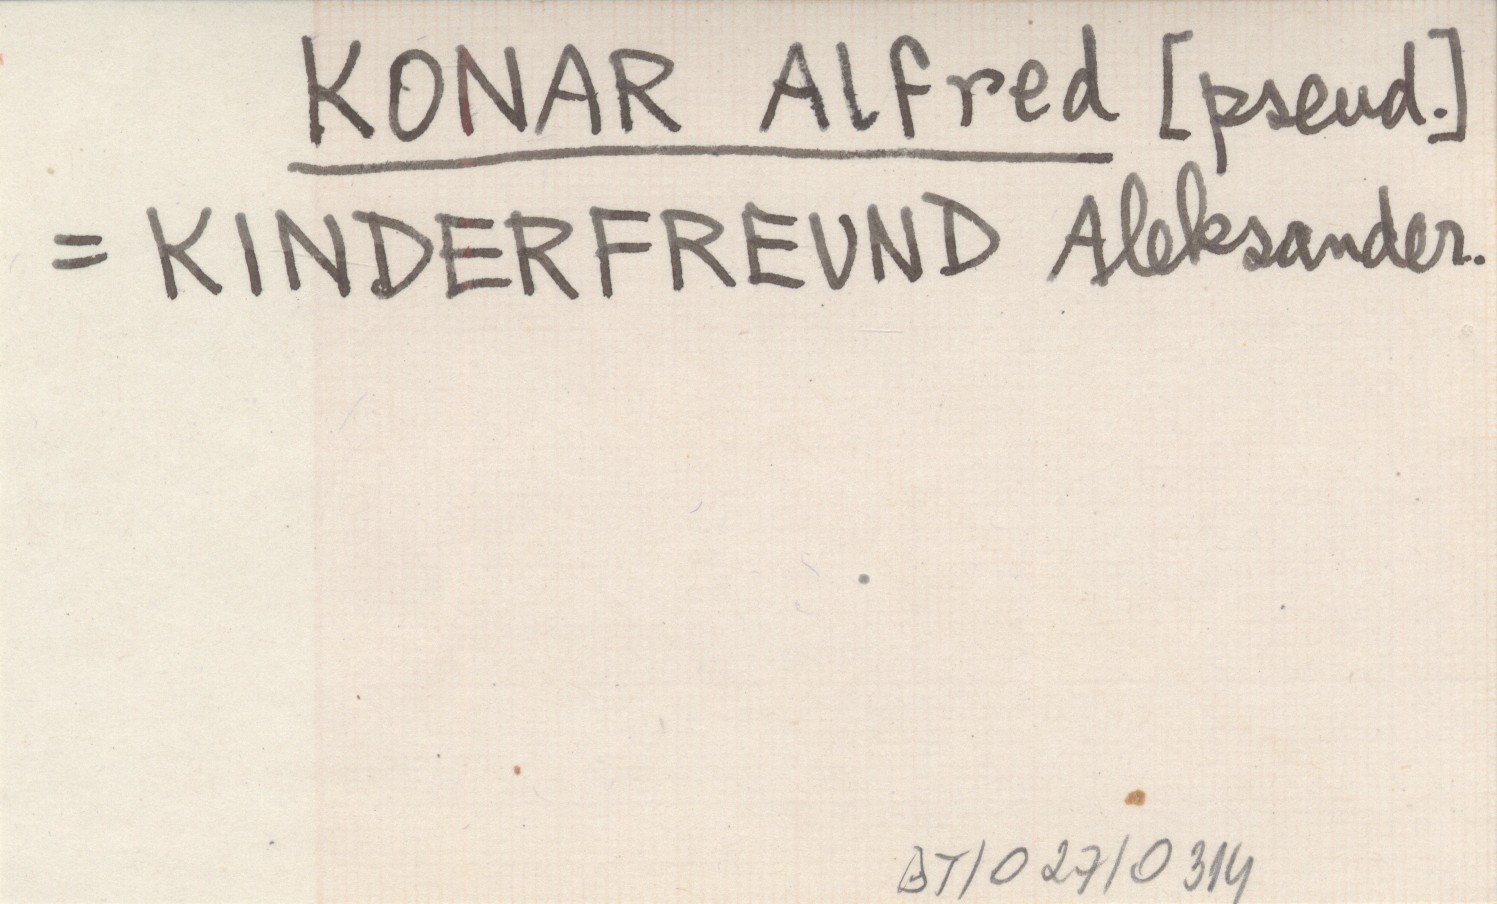 KONAR Alfred [pseud.]
= KINDERFREUND Aleksander.
BT/027/0314